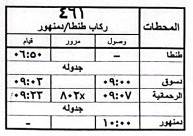 المحطات
٤٦١
ركاب طنطا/دمنهور
وصول مرور قيام
طنطا – ٠٦:٥٠
جدوله
دسوق ٠٩:٠٠ ٠٩:٠٣
الرحمانية ٠٩:٠٧ ٨٠٢x ٠٩:٢٣
جدوله
دمنهور ١٠:٠٠ –